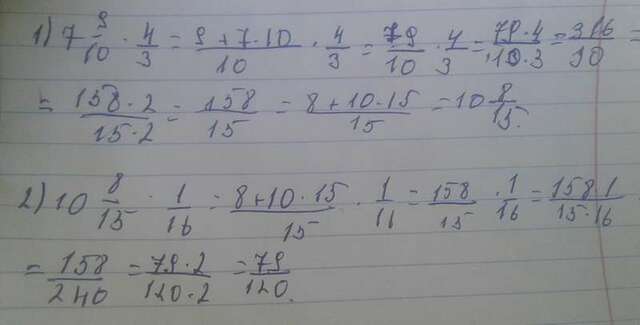 1) 7 9/10 · 4/3 = 9+7·10/10 · 4/3 = 79/10 · 4/3 = 79·4/10·3 = 316/30 =
= 158·2/15·2 = 158/15 = 8+10·15/15 = 10 8/15.
2) 10 8/15 · 1/16 = 8+10·15/15 · 1/16 = 158/15 · 1/16 = 158·1/15·16
= 158/240 = 79·2/120·2 = 79/120.